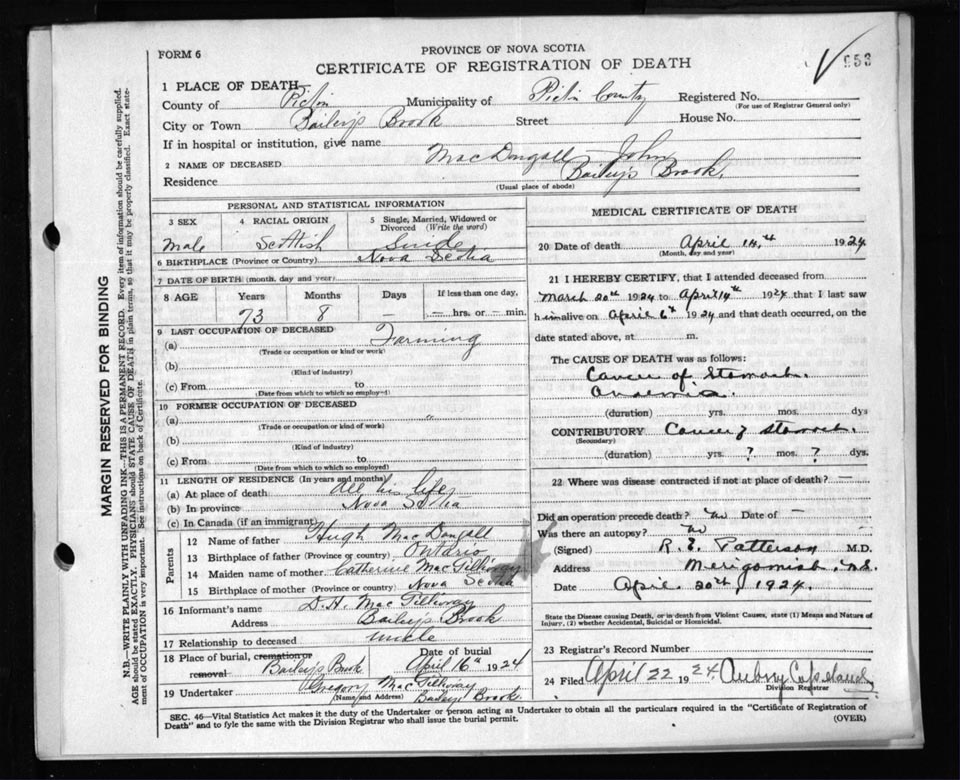 FORM 6
PROVINCE OF NOVA SCOTIA
CERTIFICATE OF REGISTRATION OF DEATH
953
1 PLACE OF DEATH
County of Pictou Municipality of Pictou County Registered No.
(For use of Registrar General only)
City or Town Bailey's Brook Street House No.
If in hospital or institution, give name
2 NAME OF DECEASED MacDougall John
Residence Bailey's Brook.
(Usual place of abode)
PERSONAL AND STATISTICAL INFORMATION
3 SEX 4 RACIAL ORIGIN 5 Single, Married, Widowed or Divorced (Write the word)
Male Scottish Single
6 BIRTHPLACE (Province or Country) Nova Scotia
7 DATE OF BIRTH (month, day and year)
8 AGE Years Months Days If less than one day,
73 8 — — hrs. or — min.
9 LAST OCCUPATION OF DECEASED
(a) Farming
(Trade or occupation or kind or work)
(b)
(Kind of industry)
(c) From to
(Date from which to which so employed)
10 FORMER OCCUPATION OF DECEASED
(a) "
(Trade or occupation or kind of work)
(b)
(Kind of industry)
(c) From to
(Date from which to which so employed)
11 LENGTH OF RESIDENCE (In years and months)
(a) At place of death all his life
(b) In province Nova Scotia
(c) In Canada (if an immigrant)
Parents
12 Name of father Hugh MacDougall
13 Birthplace of father (Province or country) Ontario
14 Maiden name of mother Catherine MacGillivray
15 Birthplace of mother (Province or country) Nova Scotia
16 Informant's name D.H. MacGillivray
Address Bailey's Brook
17 Relationship to deceased uncle
18 Place of burial, cremation or removal Bailey's Brook Date of burial April 16th 1924
19 Undertaker Gregory MacGillivray
(Name and Address) Bailey's Brook.
MEDICAL CERTIFICATE OF DEATH
20 Date of death April 14th 1924
(Month, day and year)
21 I HEREBY CERTIFY, that I attended deceased from
March 20th 1924 to April 14th 1924 that I last saw
him alive on April 6th 1924 and that death occurred, on the
date stated above, at m.
The CAUSE OF DEATH was as follows:
Cancer of Stomach.
Anaemia.
(duration) yrs. mos. dys
CONTRIBUTORY Cancer of stomach.
(Secondary)
(duration) yrs. ? mos. ? dys.
22 Where was disease contracted if not at place of death? —
Did an operation precede death? No Date of —
Was there an autopsy? No
(Signed) R. E. Patterson M.D.
Address Merigomish, N.S.
Date April 20th, 1924.
State the Disease causing Death, or in death from Violent Causes, state (1) Means and Nature of Injury, (2) whether Accidental, Suicidal or Homicidal.
23 Registrar's Record Number
24 Filed April 22 1924 Aubrey Copeland
Division Registrar
SEC. 46—Vital Statistics Act makes it the duty of the Undertaker or person acting as Undertaker to obtain all the particulars required in the "Certificate of Registration of
Death" and to fyle the same with the Division Registrar who shall issue the burial permit. (OVER)
MARGIN RESERVED FOR BINDING
N.B.—WRITE PLAINLY WITH UNFADING INK—THIS IS A PERMANENT RECORD. Every item of information should be carefully supplied.
AGE should be stated EXACTLY. PHYSICIANS should STATE CAUSE OF DEATH in plain terms, so that it may be properly classified. Exact statement of OCCUPATION is very important. See instructions on back of Certificate.